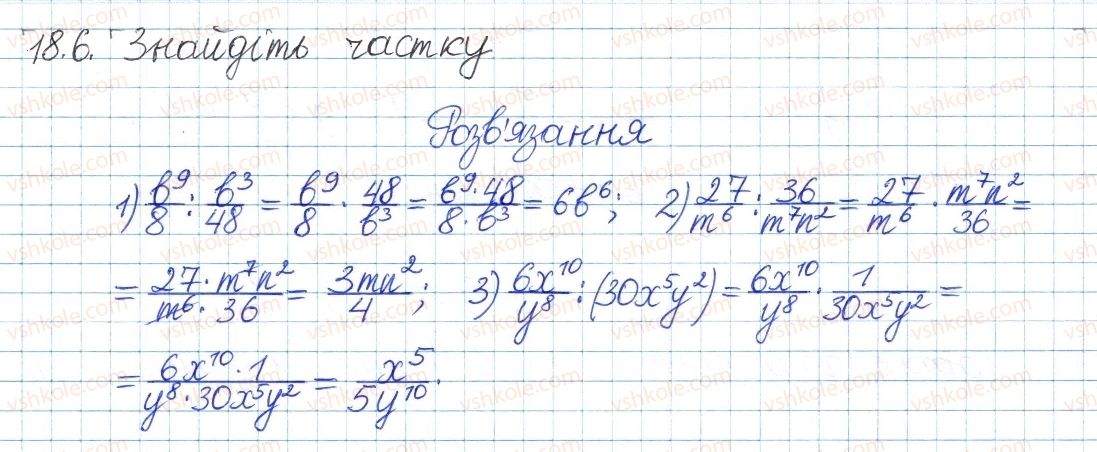 18.6. Знайдіть частку
Розв'язання
1) b⁹/8 : b³/48 = b⁹/8 · 48/b³ = b⁹·48/8·b³ = 6b⁶; 2) 27/m⁶ : 36/m⁷n² = 27/m⁶ · m⁷n²/36 =
= 27·m⁷n²/m⁶·36 = 3mn²/4; 3) 6x¹⁰/y⁸ : (30x⁵y²) = 6x¹⁰/y⁸ · 1/30x⁵y² =
= 6x¹⁰·1/y⁸·30x⁵y² = x⁵/5y¹⁰.